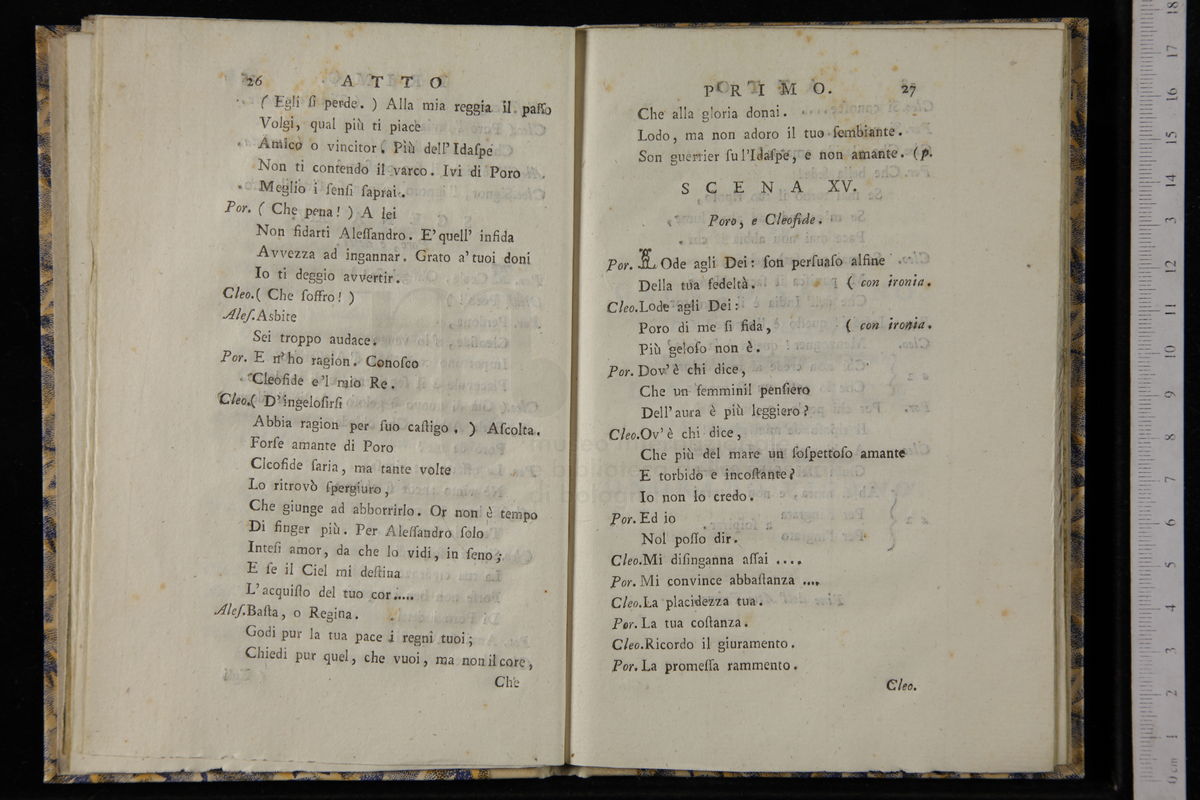 26 ATTO
( Egli ſi perde. ) Alla mia reggia il paſſo
Volgi, qual più ti piace
Amico o vincitor. Più dell' Idaſpe
Non ti contendo il varco. Ivi di Poro
Meglio i ſenſi ſaprai.
Por. ( Che pena! ) A lei
Non fidarti Aleſſandro. E' quell' infida
Avvezza ad ingannar. Grato a' tuoi doni
Io ti deggio avvertir.
Cleo. ( Che ſoffro! )
Aleſ. Asbite
Sei troppo audace.
Por. E n' ho ragion. Conoſco
Cleofide e 'l mio Re.
Cleo. ( D' ingeloſirſi
Abbia ragion per ſuo caſtigo. ) Aſcolta.
Forſe amante di Poro
Cleofide ſaria, ma tante volte
Lo ritrovò ſpergiuro,
Che giunge ad abborrirlo. Or non è tempo
Di finger più. Per Aleſſandro ſolo
Inteſi amor, da che lo vidi, in ſeno;
E ſe il Ciel mi deſtina
L' acquiſto del tuo cor.....
Aleſ. Baſta, o Regina.
Godi pur la tua pace i regni tuoi;
Chiedi pur quel, che vuoi, ma non il core,
Che
PRIMO. 27
Che alla gloria donai.
Lodo, ma non adoro il tuo ſembiante.
Son guerrier ſu l'Idaſpe, e non amante. (p.
SCENA XV.
Poro, e Cleofide.
Por. LOde agli Dei: ſon perſuaſo alfine
Della tua fedeltà. ( con ironia.
Cleo. Lode agli Dei:
Poro di me ſi fida, ( con ironia.
Più geloſo non è.
Por. Dov' è chi dice,
Che un femminil penſiero
Dell' aura è più leggiero?
Cleo. Ov' è chi dice,
Che più del mare un ſoſpettoſo amante
E torbido e incoſtante?
Io non lo credo.
Por. Ed io
Nol poſſo dir.
Cleo. Mi diſinganna aſſai ....
Por. Mi convince abbaſtanza ....
Cleo. La placidezza tua.
Por. La tua coſtanza.
Cleo. Ricordo il giuramento.
Por. La promeſſa rammento.
Cleo.